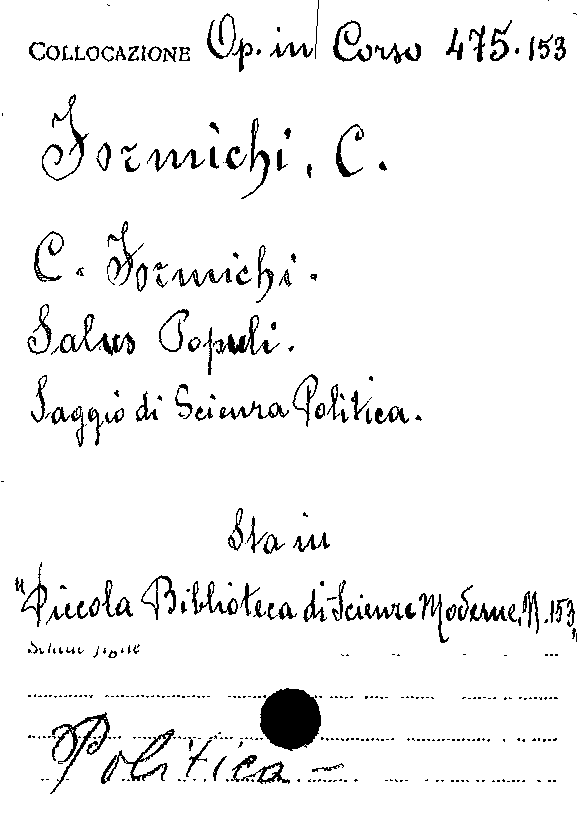 COLLOCAZIONE Op. in Corso 475.153
Formichi, C.
C. Formichi.
Salus Populi.
Saggio di Scienza Politica.
Sta in
"Piccola Biblioteca di Scienze Moderne, N. 153"
Politica -